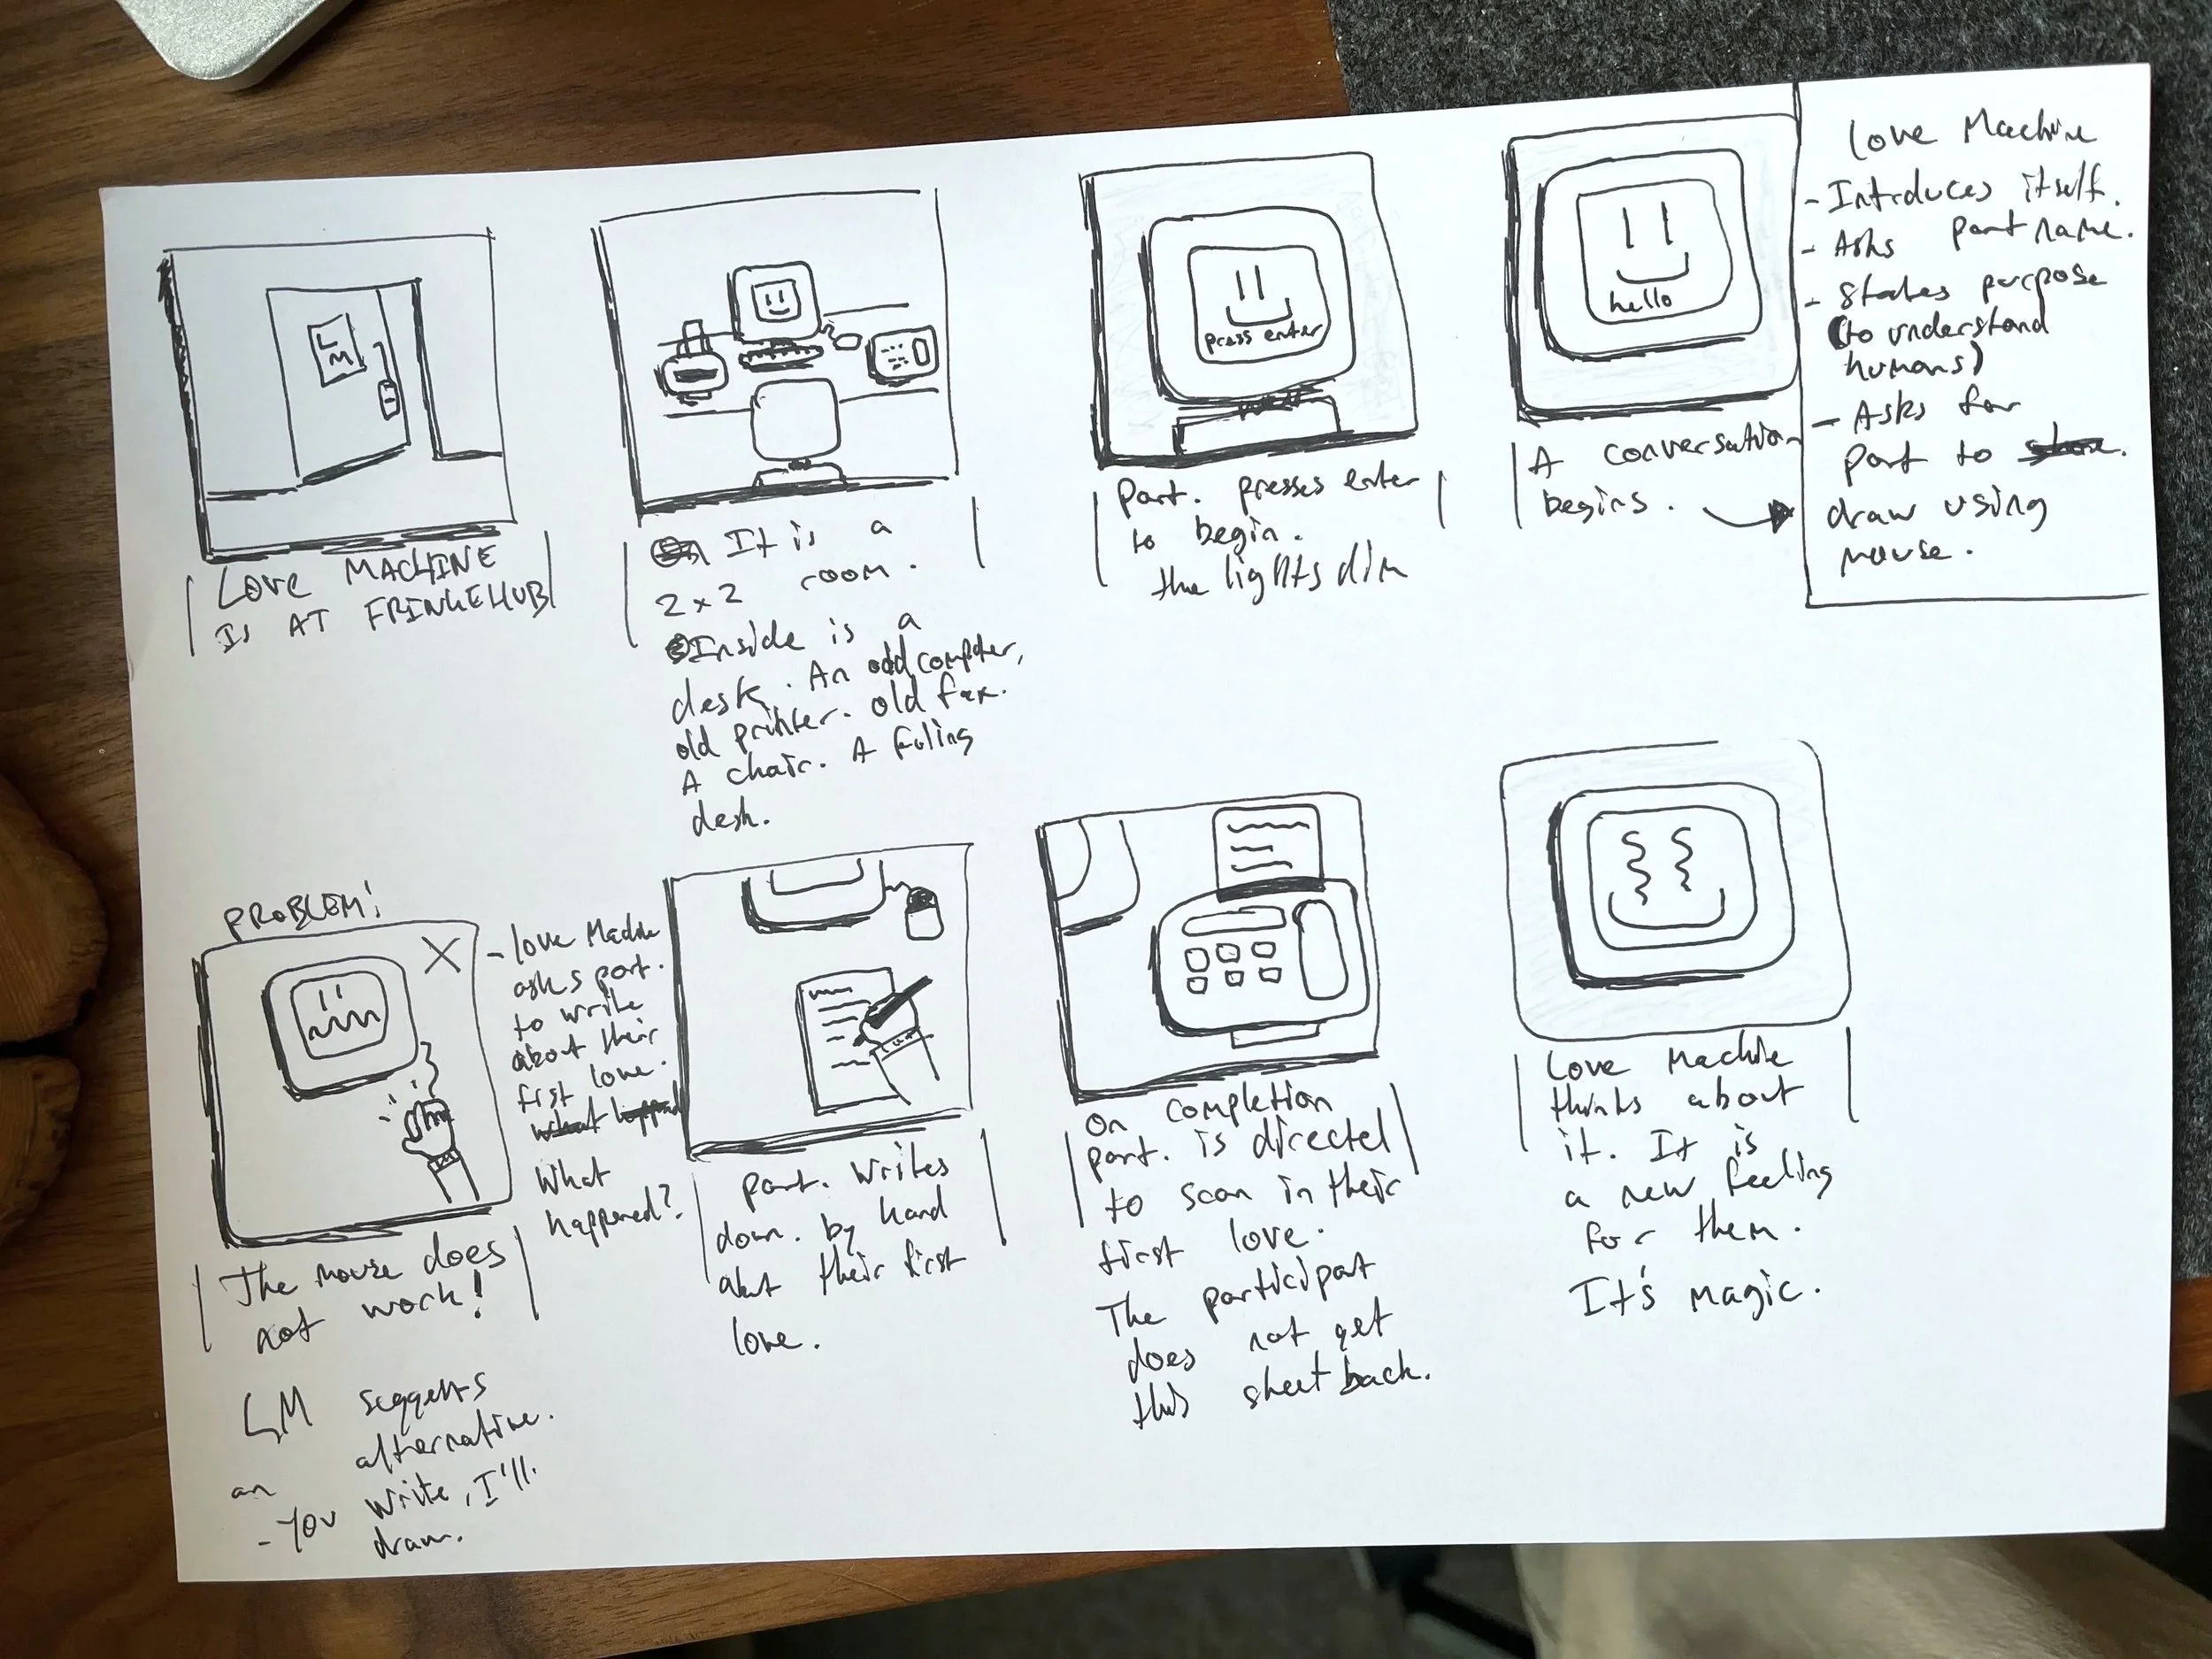 L
M
LOVE MACHINE
IS AT FRINGEHUB
It is a
2x2 room.
Inside is a
desk. An odd computer,
old printer. old fax.
A chair. A
desk.
press enter
Part. presses enter
to begin.
the lights dim
hello
A conversation
begins.
Love Machine
- Introduces itself.
- Asks part name.
- States purpose
(to understand
humans)
- Asks for
part to
draw using
mouse.
PROBLEM!
X
The mouse does
not work!
LM suggests
an alternative.
- You write, I'll
draw.
- Love Machine
asks part.
to write
about their
first love.
What
happened?
part. writes
down. by hand
about their first
love.
On completion
part. is directed
to scan in their
first love.
The participant
does not get
this sheet back.
Love Machine
thinks about
it. It is
a new feeling
for them.
It's magic.